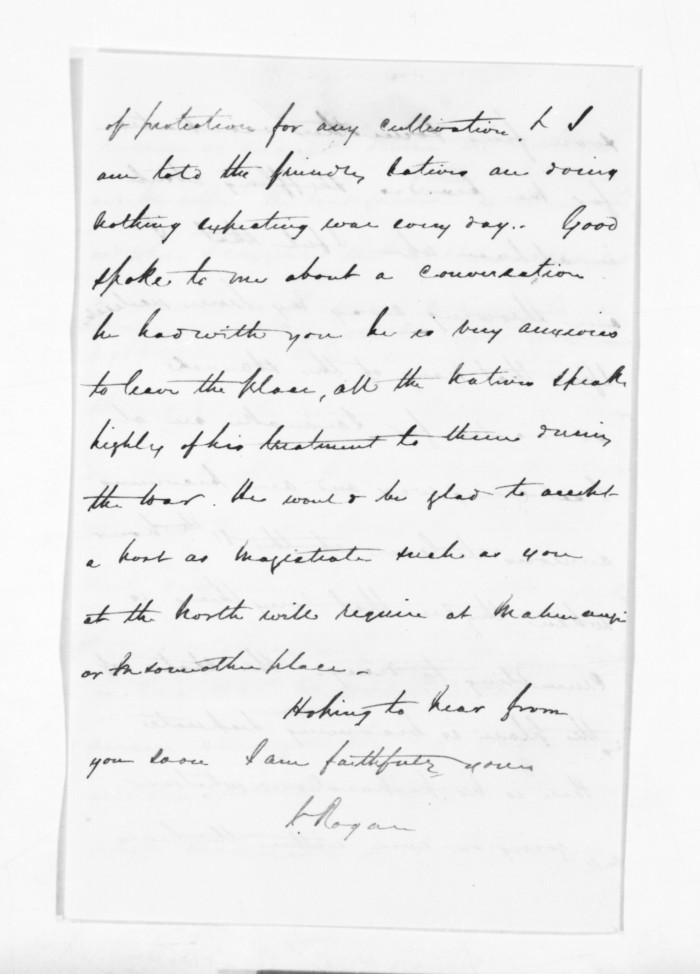 of protection for any cultivation. & I
am told the friendly natives are doing
nothing expecting war every day.. Good
spoke to me about a conversation
he had with you he is very anxious
to leave the place, all the natives speak
highly of his treatment to them during
the war. He would be glad to accept
a post as magistrate such as you
at the North will require at
or in some other place.
Hoping to hear from
you soon I am faithfully yours
J. Rogan